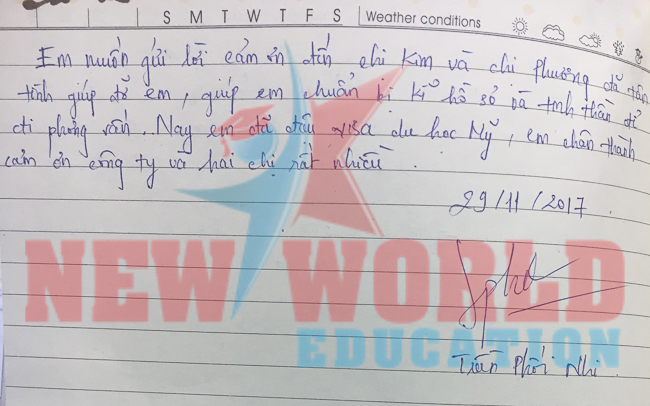 S M T W T F S Weather conditions
Em muốn gửi lời cảm ơn đến chị Kim và chị Phương đã tận
tình giúp đỡ em, giúp em chuẩn bị kĩ hồ sơ và tinh thần để
đi phỏng vấn. Nay em đã đậu visa du học Mỹ, em chân thành
cảm ơn công ty và hai chị rất nhiều.
29/11/2017
NEW WORLD
EDUCATION
Trần Phối Nhi